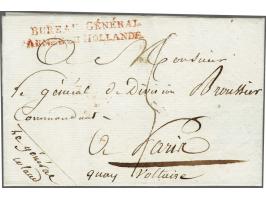 BUREAU GÉNÉRAL
ARMÉE D'HOLLANDE
A Monsieur
le général de Division Broussier
Commandant
a Paris
quay Voltaire
le général